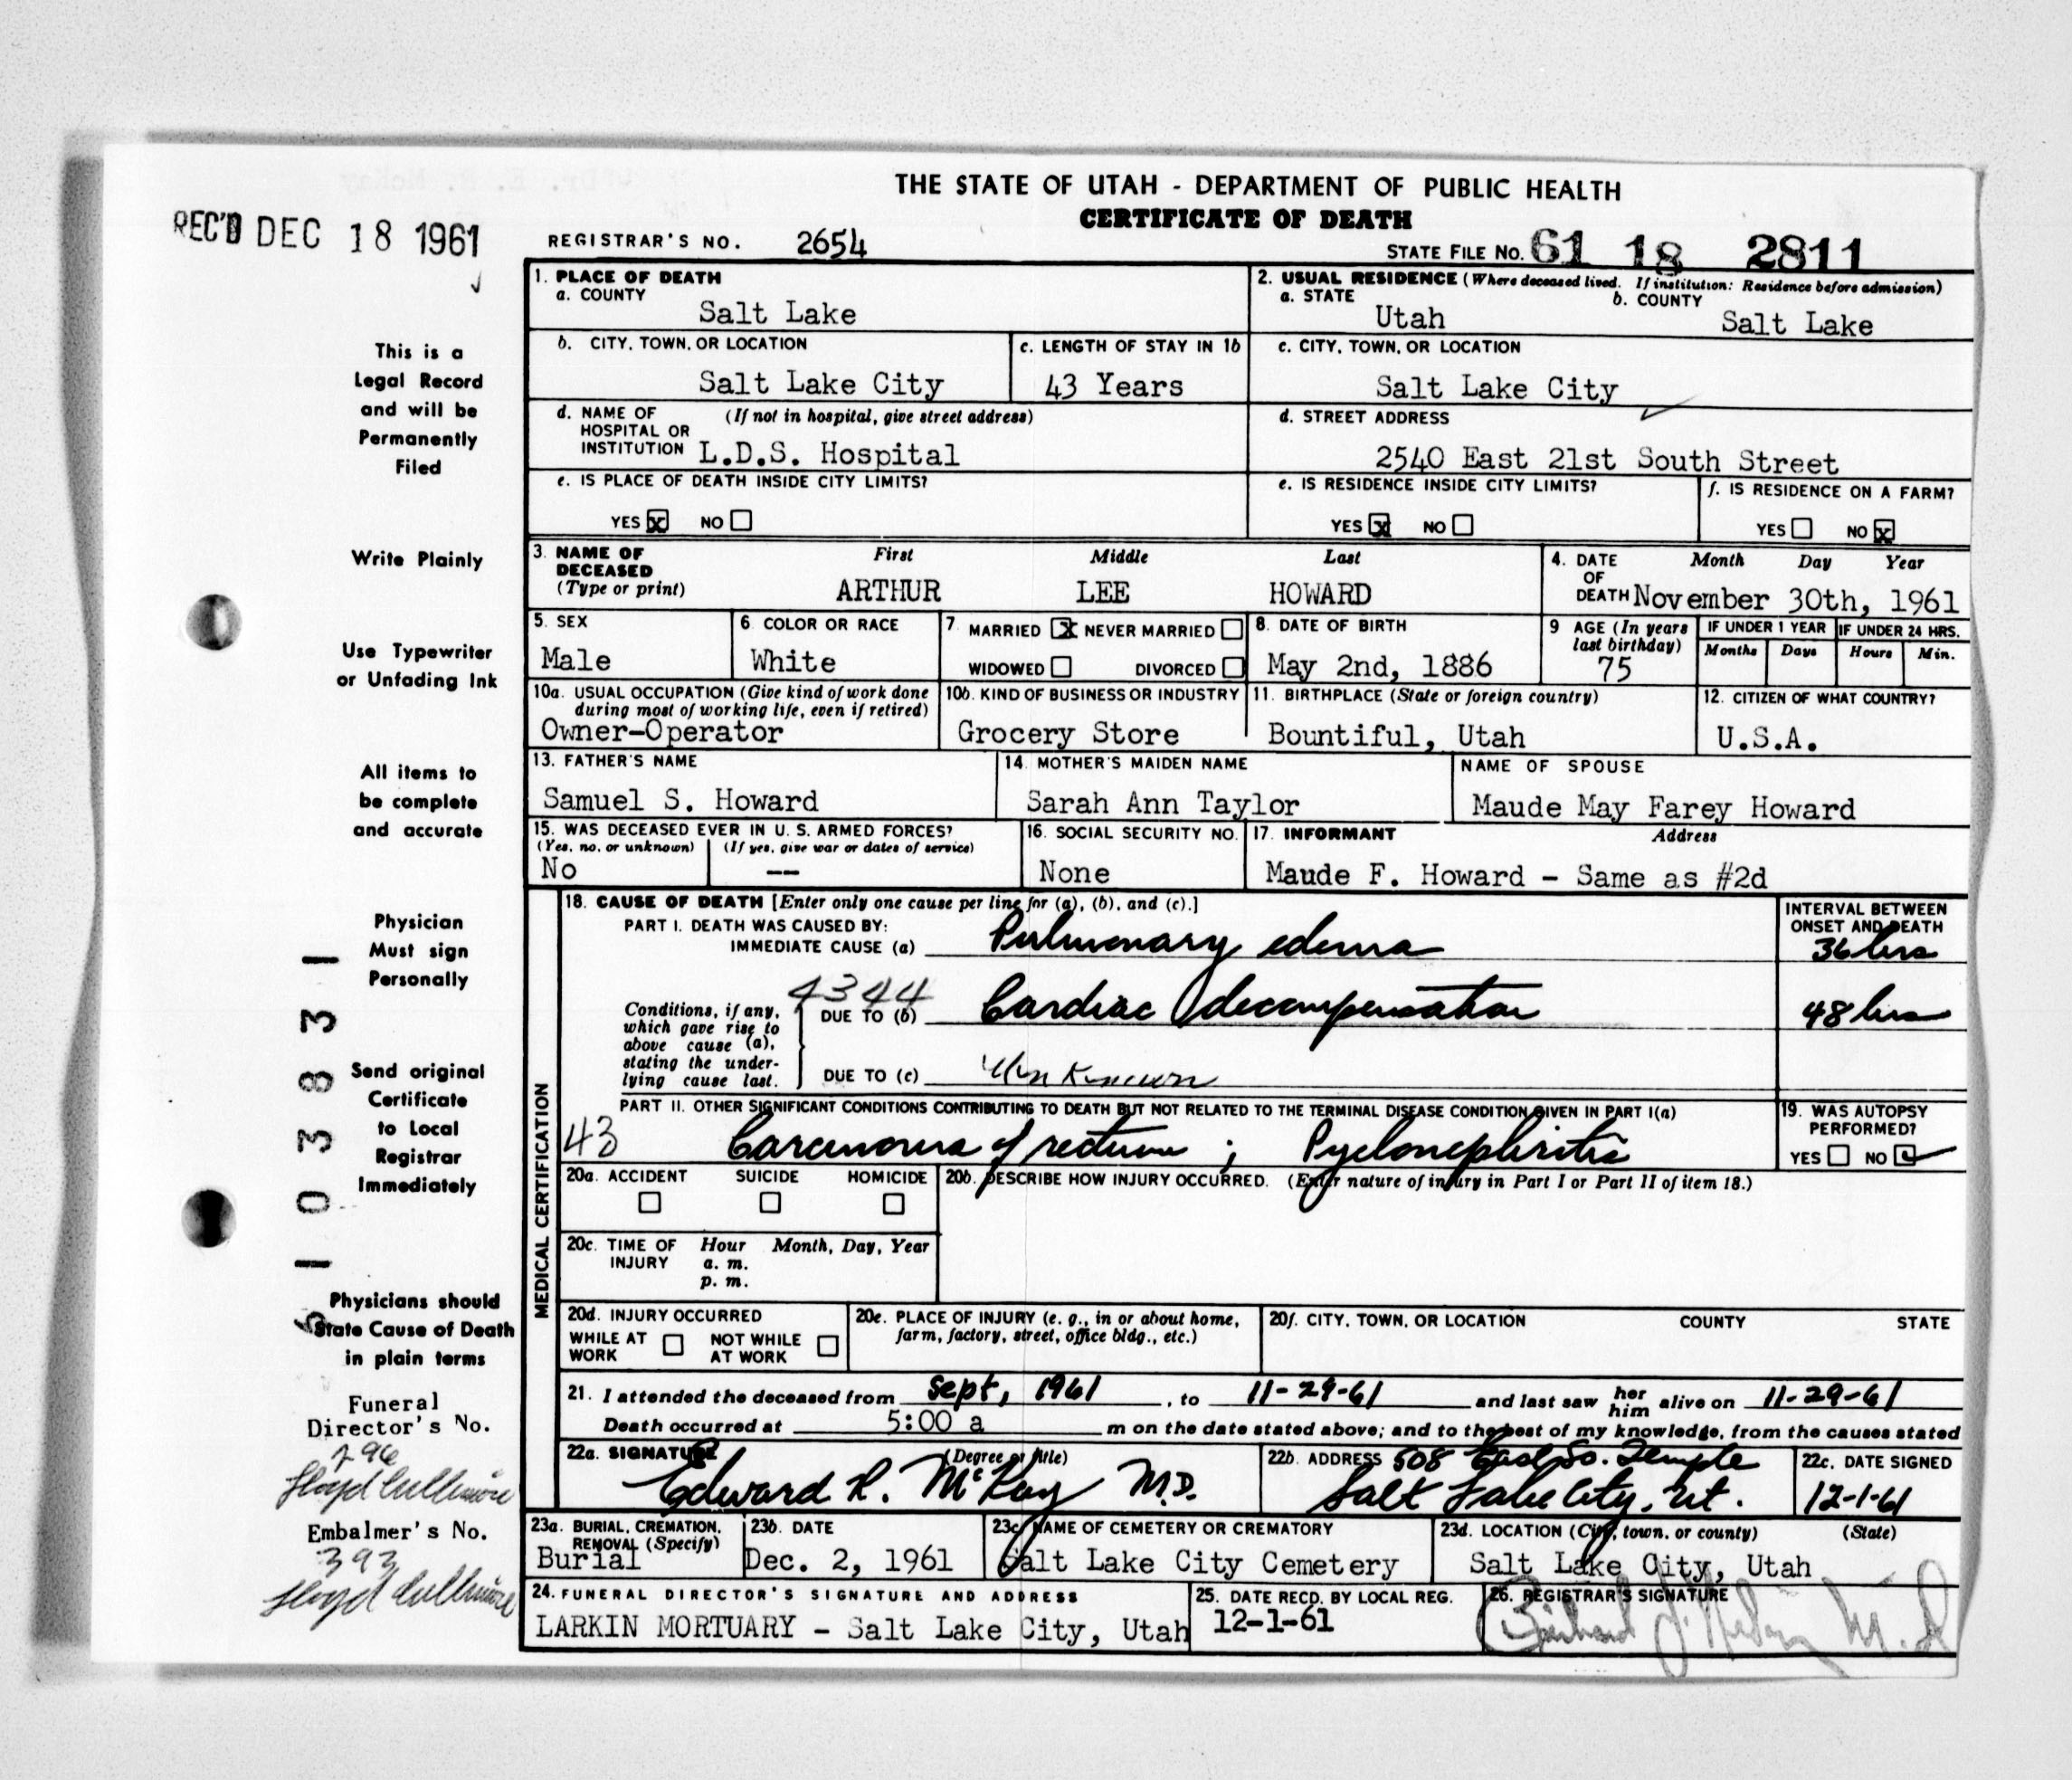 THE STATE OF UTAH - DEPARTMENT OF PUBLIC HEALTH
CERTIFICATE OF DEATH
REC'D DEC 18 1961
REGISTRAR'S NO. 2654
STATE FILE NO. 61 18 2811
This is a
Legal Record
and will be
Permanently
Filed
Write Plainly
Use Typewriter
or Unfading Ink
All items to
be complete
and accurate
Physician
Must sign
Personally
Send original
Certificate
to Local
Registrar
Immediately
Physicians should
State Cause of Death
in plain terms
Funeral
Director's No.
296
Embalmer's No.
393
1. PLACE OF DEATH
a. COUNTY
Salt Lake
2. USUAL RESIDENCE (Where deceased lived. If institution: Residence before admission)
a. STATE b. COUNTY
Utah Salt Lake
b. CITY, TOWN, OR LOCATION
Salt Lake City
c. LENGTH OF STAY IN 1b
43 Years
c. CITY, TOWN, OR LOCATION
Salt Lake City
d. NAME OF (If not in hospital, give street address)
HOSPITAL OR
INSTITUTION L.D.S. Hospital
d. STREET ADDRESS
2540 East 21st South Street
e. IS PLACE OF DEATH INSIDE CITY LIMITS?
YES x NO
e. IS RESIDENCE INSIDE CITY LIMITS?
YES x NO
f. IS RESIDENCE ON A FARM?
YES NO x
3. NAME OF DECEASED
(Type or print)
First Middle Last
ARTHUR LEE HOWARD
4. DATE OF DEATH
Month Day Year
November 30th, 1961
5. SEX
Male
6. COLOR OR RACE
White
7. MARRIED X NEVER MARRIED
WIDOWED DIVORCED
8. DATE OF BIRTH
May 2nd, 1886
9 AGE (In years
last birthday)
75
IF UNDER 1 YEAR
Months Days
IF UNDER 24 HRS.
Hours Min.
10a. USUAL OCCUPATION (Give kind of work done
during most of working life, even if retired)
Owner-Operator
10b. KIND OF BUSINESS OR INDUSTRY
Grocery Store
11. BIRTHPLACE (State or foreign country)
Bountiful, Utah
12. CITIZEN OF WHAT COUNTRY?
U.S.A.
13. FATHER'S NAME
Samuel S. Howard
14. MOTHER'S MAIDEN NAME
Sarah Ann Taylor
NAME OF SPOUSE
Maude May Farey Howard
15. WAS DECEASED EVER IN U. S. ARMED FORCES?
(Yes, no, or unknown) (If yes, give war or dates of service)
No --
16. SOCIAL SECURITY NO.
None
17. INFORMANT Address
Maude F. Howard - Same as #2d
MEDICAL CERTIFICATION
18. CAUSE OF DEATH [Enter only one cause per line for (a), (b), and (c).]
PART I. DEATH WAS CAUSED BY:
IMMEDIATE CAUSE (a) Pulmonary edema
INTERVAL BETWEEN
ONSET AND DEATH
36 hrs
4344
Conditions, if any,
which gave rise to
above cause (a),
stating the under-
lying cause last.
DUE TO (b) Cardiac decompensation
48 hrs
DUE TO (c) Unknown
PART II. OTHER SIGNIFICANT CONDITIONS CONTRIBUTING TO DEATH BUT NOT RELATED TO THE TERMINAL DISEASE CONDITION GIVEN IN PART I(a)
43 Carcinoma of rectum ; Pyelonephritis
19. WAS AUTOPSY
PERFORMED?
YES NO ✓
20a. ACCIDENT SUICIDE HOMICIDE
20b. DESCRIBE HOW INJURY OCCURRED. (Enter nature of injury in Part I or Part II of item 18.)
20c. TIME OF Hour Month, Day, Year
INJURY a. m.
p. m.
20d. INJURY OCCURRED
WHILE AT WORK NOT WHILE AT WORK
20e. PLACE OF INJURY (e. g., in or about home,
farm, factory, street, office bldg., etc.)
20f. CITY, TOWN, OR LOCATION COUNTY STATE
21. I attended the deceased from Sept, 1961, to 11-29-61 and last saw her him alive on 11-29-61
Death occurred at 5:00 a m on the date stated above; and to the best of my knowledge, from the causes stated
22a. SIGNATURE (Degree or title)
Edward R. McKay M.D.
22b. ADDRESS 508 East So. Temple
Salt Lake City, Ut.
22c. DATE SIGNED
12-1-61
23a. BURIAL, CREMATION,
REMOVAL (Specify)
Burial
23b. DATE
Dec. 2, 1961
23c. NAME OF CEMETERY OR CREMATORY
Salt Lake City Cemetery
23d. LOCATION (City, town, or county) (State)
Salt Lake City, Utah
24. FUNERAL DIRECTOR'S SIGNATURE AND ADDRESS
LARKIN MORTUARY - Salt Lake City, Utah
25. DATE RECD. BY LOCAL REG.
12-1-61
26. REGISTRAR'S SIGNATURE